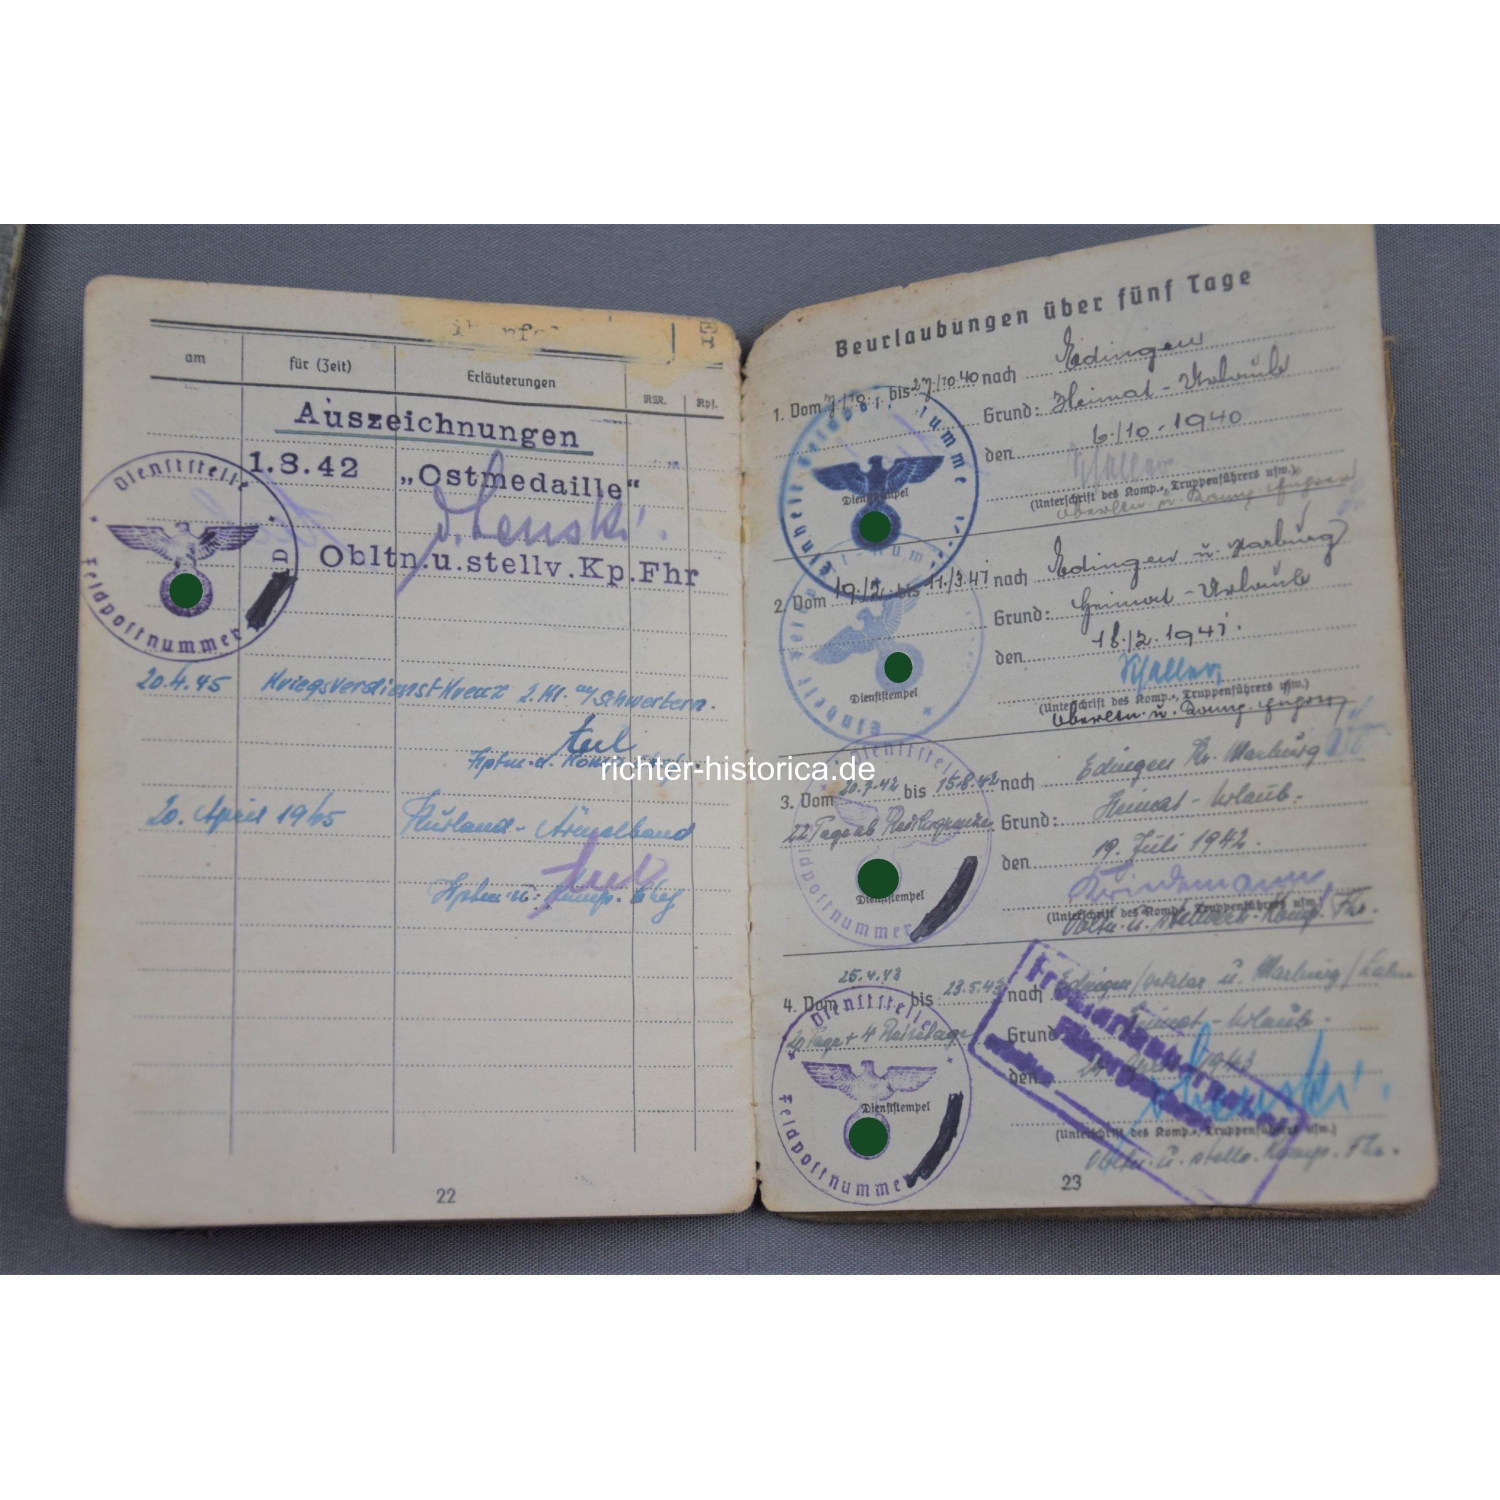 am
für (Zeit)
Erläuterungen
RM.
Rpf.
Auszeichnungen
1.8.42 „Ostmedaille“
v. Lenski.
Obltn.u.stellv.Kp.Fhr
Dienststelle
Feldpostnummer
D
20.4.45 Kriegsverdienstkreuz 2. Kl. m/Schwertern.
Hptm. u.
20. April 1945 Kurland-Ärmelband
Hptm. u. Komp. Chef
22
richter-historica.de
Beurlaubungen über fünf Tage
1. Vom 7/10. bis 27/10.40 nach Edingen
Grund: Heimat-Urlaub
den 6/10.1940
Dienststempel
(Unterschrift des Komp.-, Truppenführers usw.)
2. Vom 19/2. bis 11./3.41 nach Edingen u. Marburg
Grund: Heimat-Urlaub
den 18./2.1941.
Dienststempel
(Unterschrift des Komp.-, Truppenführers usw.)
3. Vom 20.7.42 bis 15.8.42 nach Edingen Kr. Marburg
22 Tage ab Reichsgrenze Grund: Heimat-Urlaub.
den 19. Juli 1942.
Dienststelle
Feldpostnummer
Dienststempel
(Unterschrift des Komp.-, Truppenführers usw.)
Obltn. u. stellvertr. Komp. Fhr.
4. Vom 25.4.43 bis 23.5.43 nach Edingen/Wetzlar u. Marburg/Lahn
20 Tage + 4 Reisetage Grund: Heimat-Urlaub.
den 1943
Dienststelle
Feldpostnummer
Dienststempel
v. Lenski.
(Unterschrift des Komp.-, Truppenführers usw.)
Obltn. u. stellv. Komp. Fhr.
23